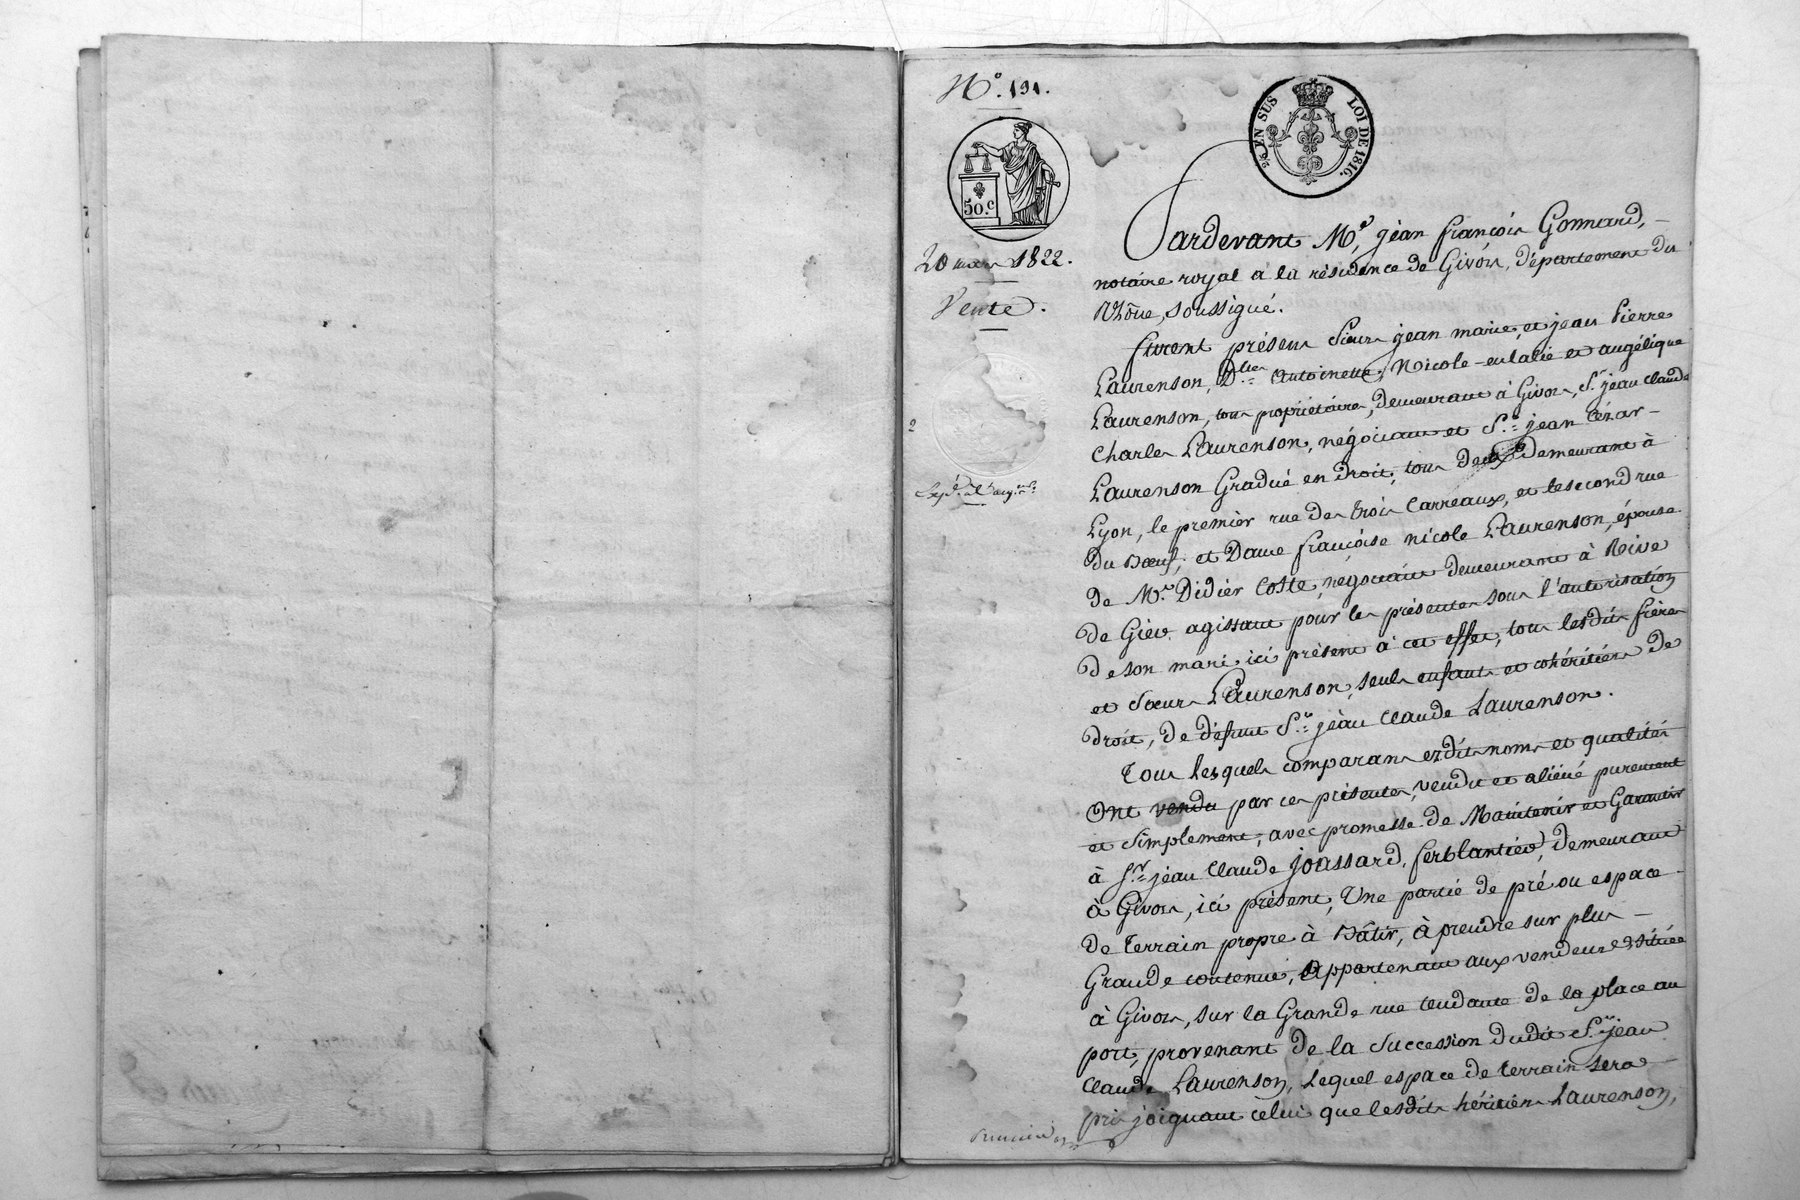 N.° 191.
¾ EN SUS LOI DE 1816.
50.c
20 mars 1822.
Vente.
Pardevant M.e jean françois Gonnard,
notaire royal à la résidence de Givors, département du
Rhône, soussigné.
furent présens Sieurs jean marie, et jean Pierre
Laurenson, D.lles Antoinette, Nicole-eulalie et angélique
Laurenson, tous propriétaires, demeurant à Givors, S.r jean Claude
Charles Laurenson, négociant et S.r jean Cézar-
Laurenson Gradué en droit, tous deux demeurant à
Lyon, le premier rue des trois Carreaux, et le second rue
du Bœuf, et Dame françoise nicole Laurenson, épouse
de M.r Didier Coste, négociant demeurant à Rive
de Gier agissant pour les présentes sous l'autorisation
de son mari ici présent à cet effet, tous lesdits frères
et sœurs Laurenson, seuls enfants et cohéritiers de
droit, de défunt S.r jean Claude Laurenson.
Tous lesquels comparans ezdits noms et qualités
Ont vendu par ces présentes, vendu et aliéné purement
et simplement, avec promesse de Maintenir et Garantir
à S.r jean Claude joassard, ferblantier, demeurant
à Givors, ici présent, Une partie de pré ou espace
de terrain propre à Bâtir, à prendre sur plus-
Grande contenue, Appartenant aux vendeurs située
à Givors, sur la Grande rue tendante de la place au
port, provenant de la Succession dudit S.r jean
Claude Laurenson, Lequel espace de terrain sera
pris joignant celui que lesdits héritiers Laurenson,